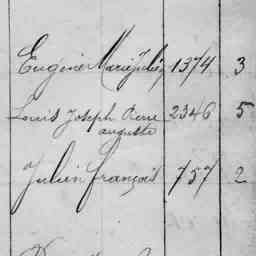 Eugène Marie Julie 1374 3
Louis Joseph Pierre 2346 5
auguste
Julien françois 757 2